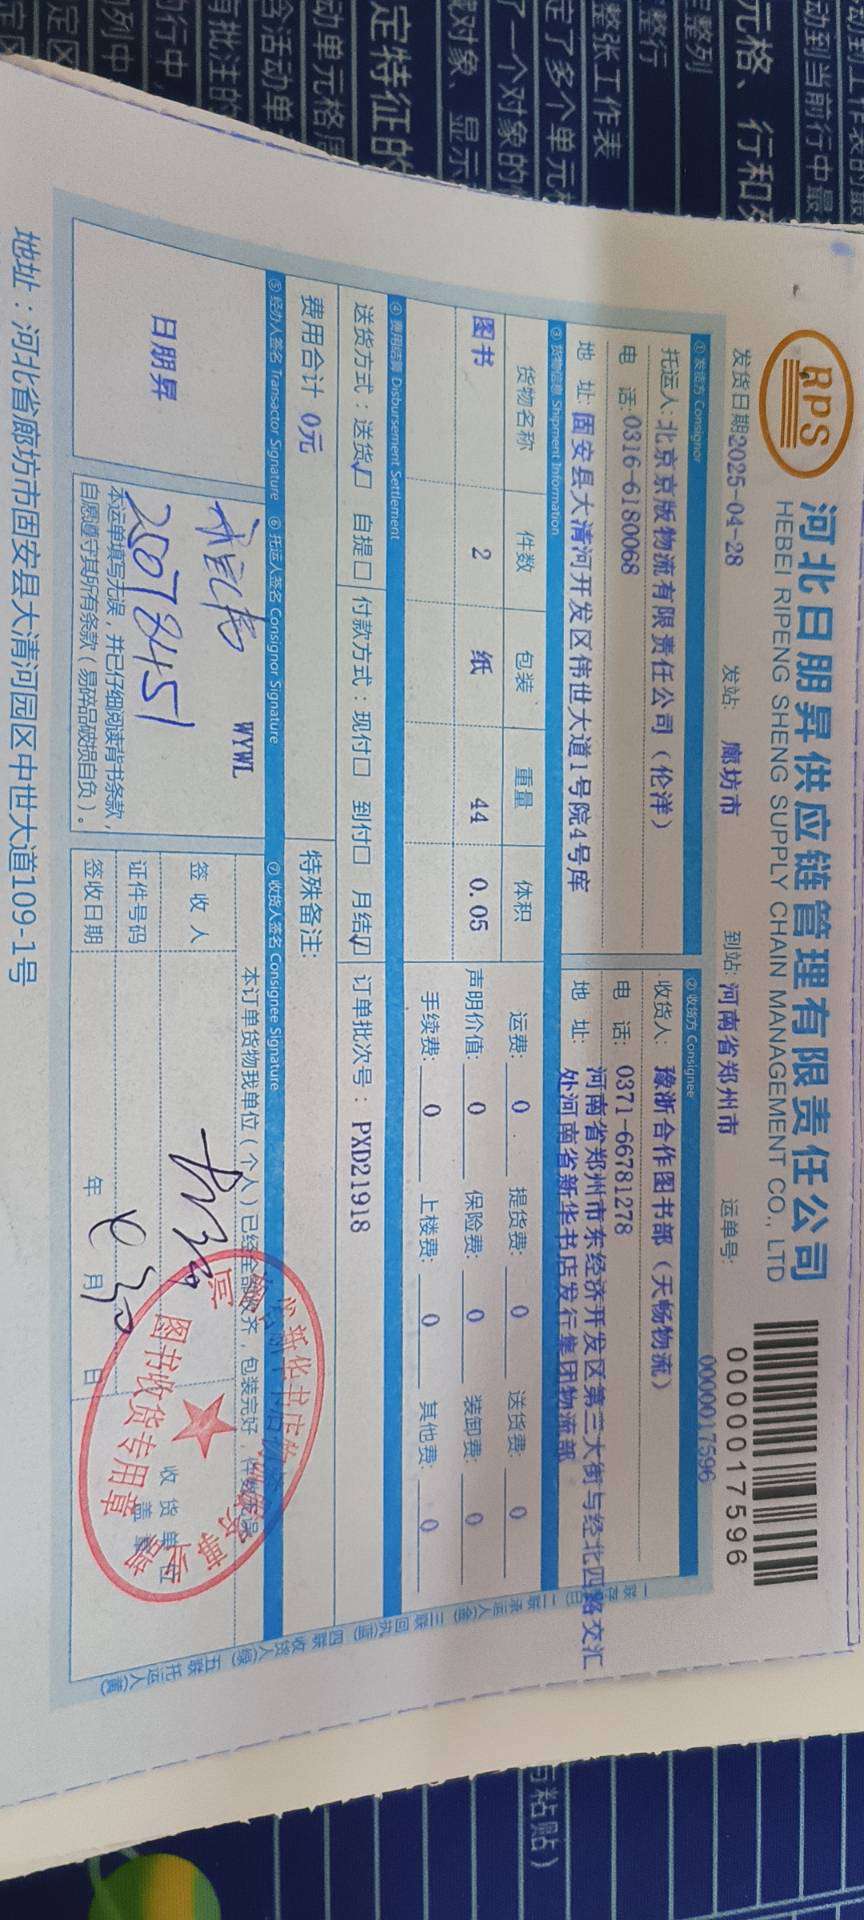 RPS
河北日朋昇供应链管理有限责任公司
HEBEI RIPENG SHENG SUPPLY CHAIN MANAGEMENT CO., LTD
0000017596
0000017596
发货日期2025-04-28 发站: 廊坊市 到站: 河南省郑州市 运单号:
① 发货方 Consignor
托运人: 北京京版物流有限责任公司（伦洋）
电 话:0316-6180068
地 址: 固安县大清河开发区伟世大道1号院4号库
② 收货方 Consignee
收货人: 豫浙合作图书部（天畅物流）
电 话: 0371-66781278
地 址: 河南省郑州市东经济开发区第三大街与经北四路交汇
处河南省新华书店发行集团物流部
③ 货物信息 Shipment Information
货物名称 件数 包装 重量 体积
图书 2 纸 44 0.05
运费: 0 提货费: 0 送货费: 0
声明价值: 0 保险费: 0 装卸费: 0
手续费: 0 上楼费: 0 其他费: 0
④ 费用结算 Disbursement Settlement
送货方式：送货☑ 自提□ 付款方式：现付□ 到付□ 月结☑ 订单批次号：PXD21918
费用合计 0元 特殊备注:
⑤ 经办人签名 Transactor Signature ⑥ 托运人签名 Consignor Signature ⑦ 收货人签名 Consignee Signature
日朋昇
WYWL
25078451
本运单填写无误，并已仔细阅读背书条款，
自愿遵守其所有条款（易碎品破损自负）。
本订单货物我单位（个人）已经全部收齐，包装完好，件数无误
签 收 人
证件号码
签收日期 年 月 日
4 30
收货单位
盖章
图书收货专用章
地址：河北省廊坊市固安县大清河园区中世大道109-1号
定特征的
整张工作表
整行
整列
元格、行和列